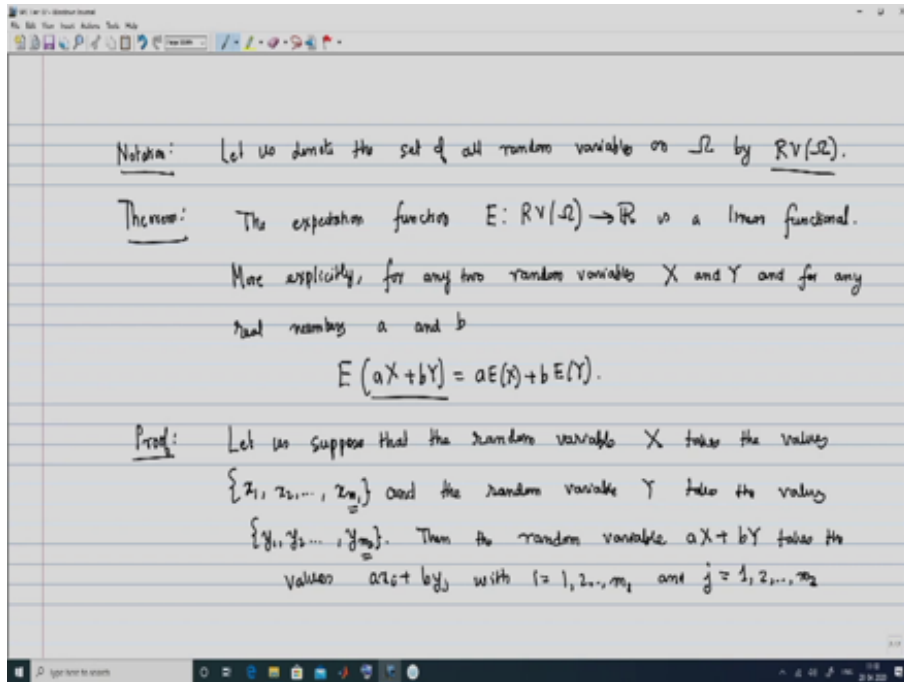 File Edit View Insert Actions Tools Help
Notation: Let us denote the set of all random variables on Ω by RV(Ω).
Theorem: The expectation function E: RV(Ω) → ℝ is a linear functional.
More explicitly, for any two random variables X and Y and for any
real numbers a and b
E (aX + bY) = aE(X) + bE(Y).
Proof: Let us suppose that the random variable X takes the values
{x₁, x₂, ..., xₙ₁} and the random variable Y takes the values
{y₁, y₂ ..., yₙ₂}. Then the random variable aX + bY takes the
values axᵢ + byⱼ with i = 1, 2, .., n₁ and j = 1, 2, .., n₂
Type here to search